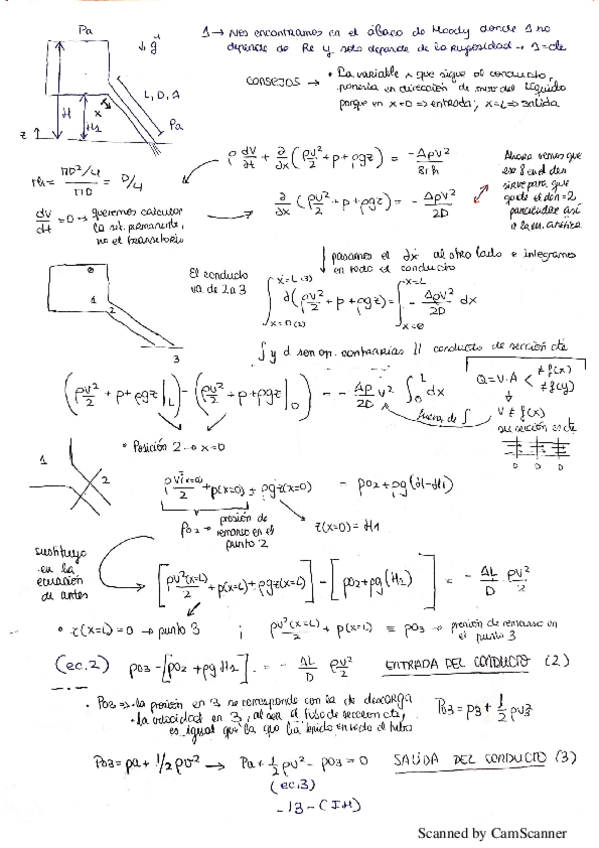 Pa
↓g⃗
1 → Nos encontramos en el ábaco de Moody donde λ no
depende de Re y solo depende de la rugosidad → λ=cte
CONSEJOS → • La variable x que sigue al conducto,
ponerla en dirección de
porque en x=0 ⇒ entrada; x=L ⇒ salida
L, D, A
H
H1
x
z
Pa
ρ dv/dt + ∂/∂x (ρv²/2 + p + ρgz) = -λρv²/8rh
rh = πD²/4 / πD = D/4
Ahora vemos que
ese 8 en el den
sirve para que
quede el den=2
dv/dt = 0 → queremos calcular
la sit. permanente,
no el transitorio
∂/∂x (ρv²/2 + p + ρgz) = - λρv²/2D
pasamos el dx al otro lado e integramos
en todo el conducto
El conducto
va de 2 a 3
∫ x=L (3) x=0 (2) ∂(ρv²/2 + p + ρgz) = ∫ x=L x=0 - λρv²/2D dx
1
2
3
∫ y d son op. contrarias || conducto de sección cte
(ρv²/2 + p + ρgz|L) - (ρv²/2 + p + ρgz|0) = - λρ/2D v² ∫₀ᴸ dx
fuera de ∫
Q = V·A < ≠f(x) ≠f(y)
V ≠ f(x)
su sección es cte
• Posición 2 → x=0
1
2
ρv²(x=0)/2 + p(x=0) + ρgz(x=0)
p02 → presión de
remanso en el
punto 2
z(x=0) = H1
sustituyo
en la
ecuación
de antes
[ρv²(x=L)/2 + p(x=L) + ρgz(x=L)] - [p02 + ρg(H1)] = - λL/D ρv²/2
• z(x=L)=0 → punto 3 ; ρv²(x=L)/2 + p(x=L) ≡ p03 → presión de remanso en
el punto 3
(ec.2) p03 - [p02 + ρgH1] = - λL/D ρv²/2 ENTRADA DEL CONDUCTO (2)
• P03 ⇒ • la presión en 3 se corresponde con la de descarga
• la velocidad en 3, al ser el tubo de sección cte,
es igual que la que ha tenido en todo el tubo
P03 = p3 + 1/2 ρv3²
P03 = pa + 1/2 ρv² → Pa + 1/2 ρv² - p03 = 0 SALIDA DEL CONDUCTO (3)
(ec.3)
-13-(IH)
Scanned by CamScanner